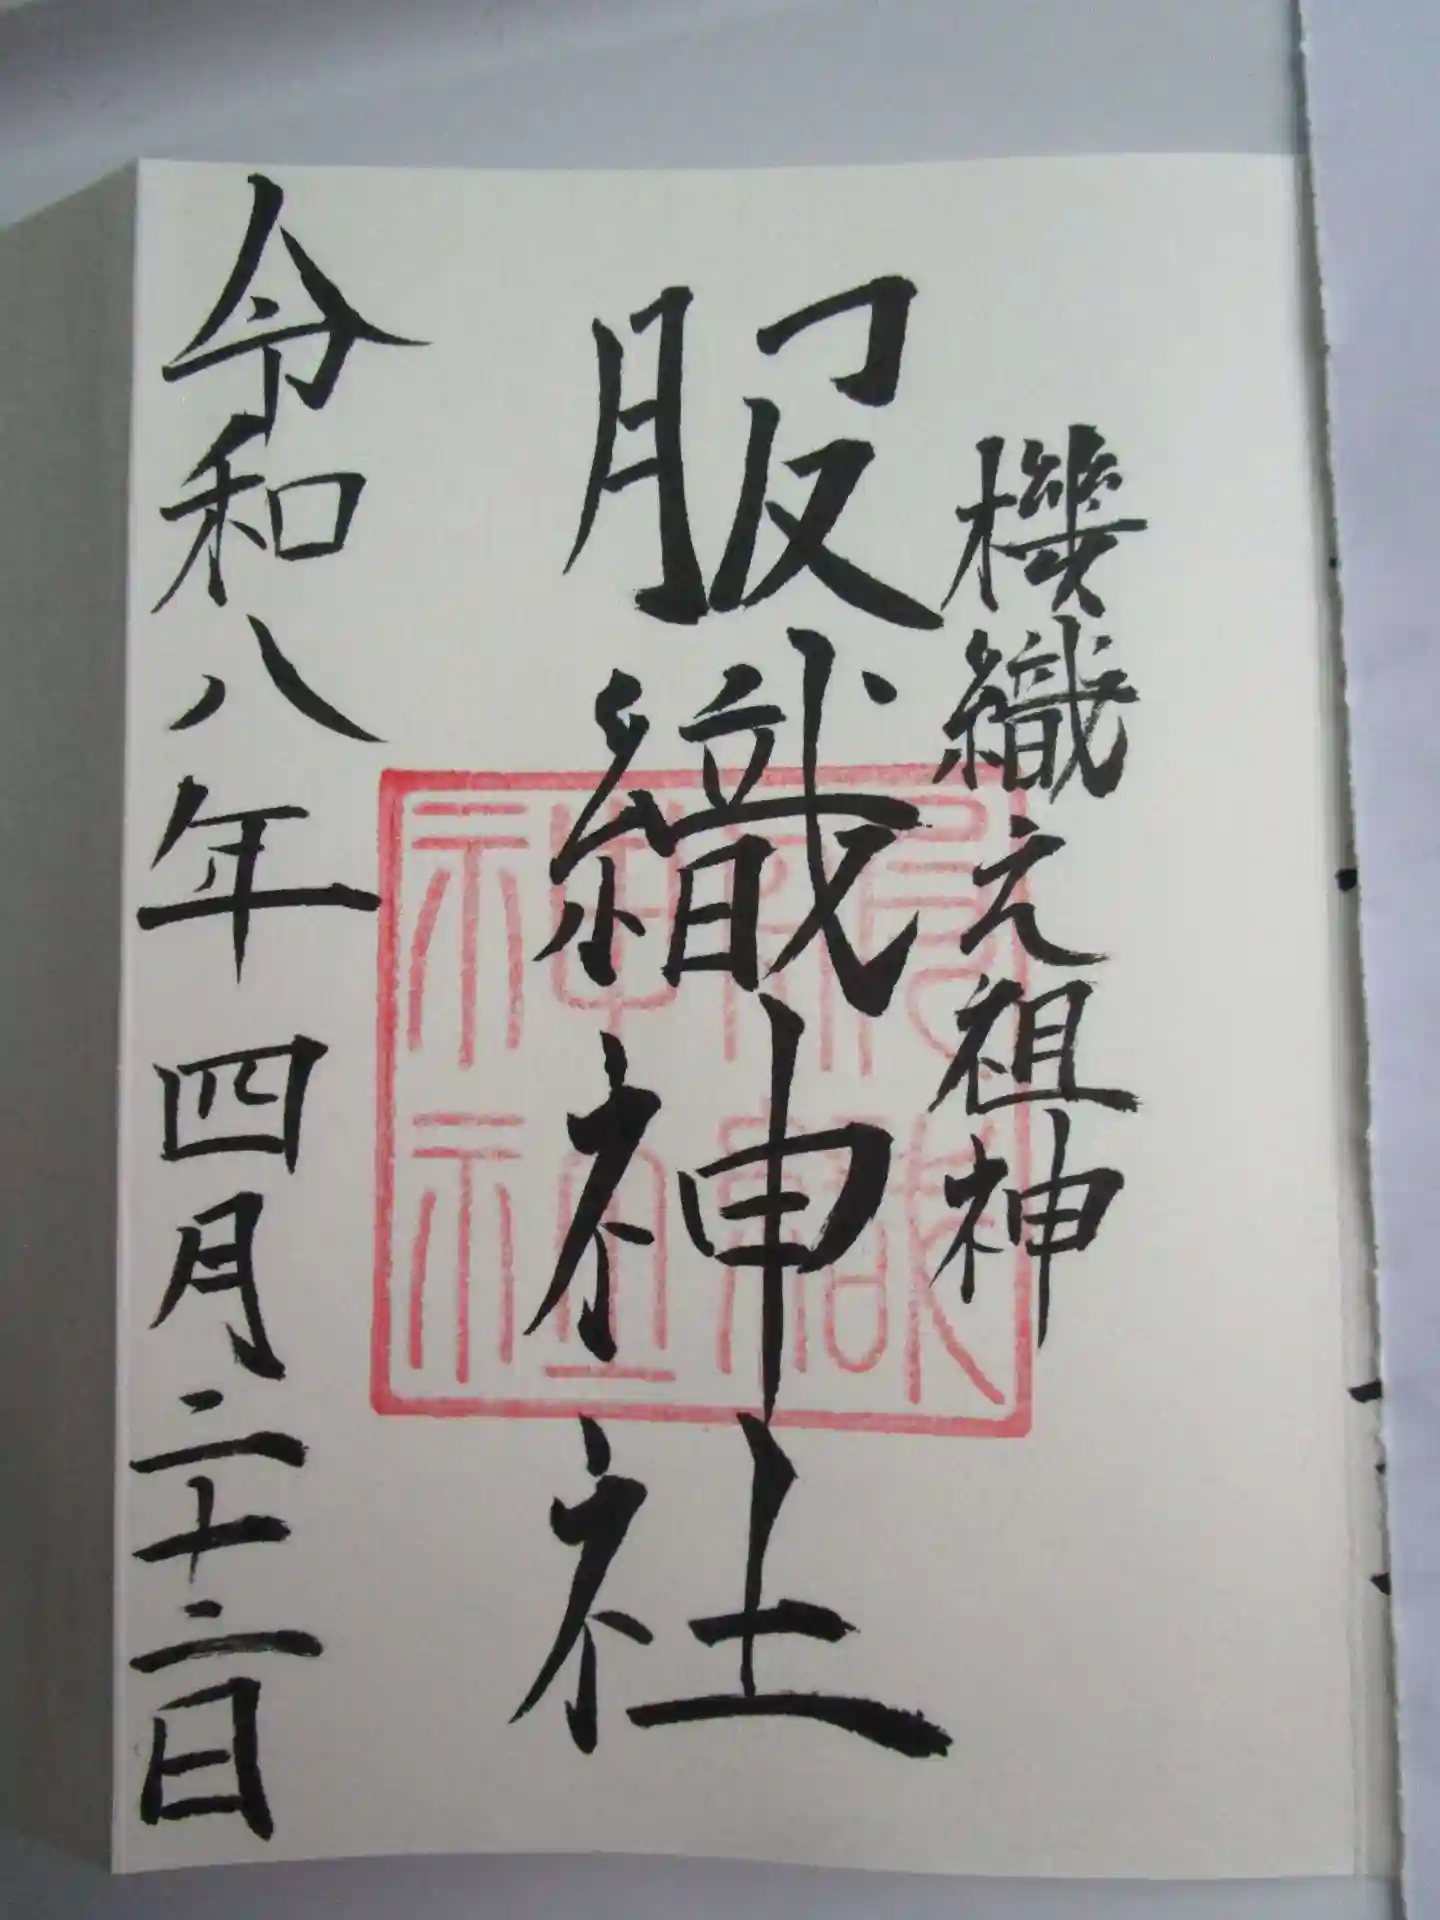 機織元祖神
服織神社
令和八年四月二十二日